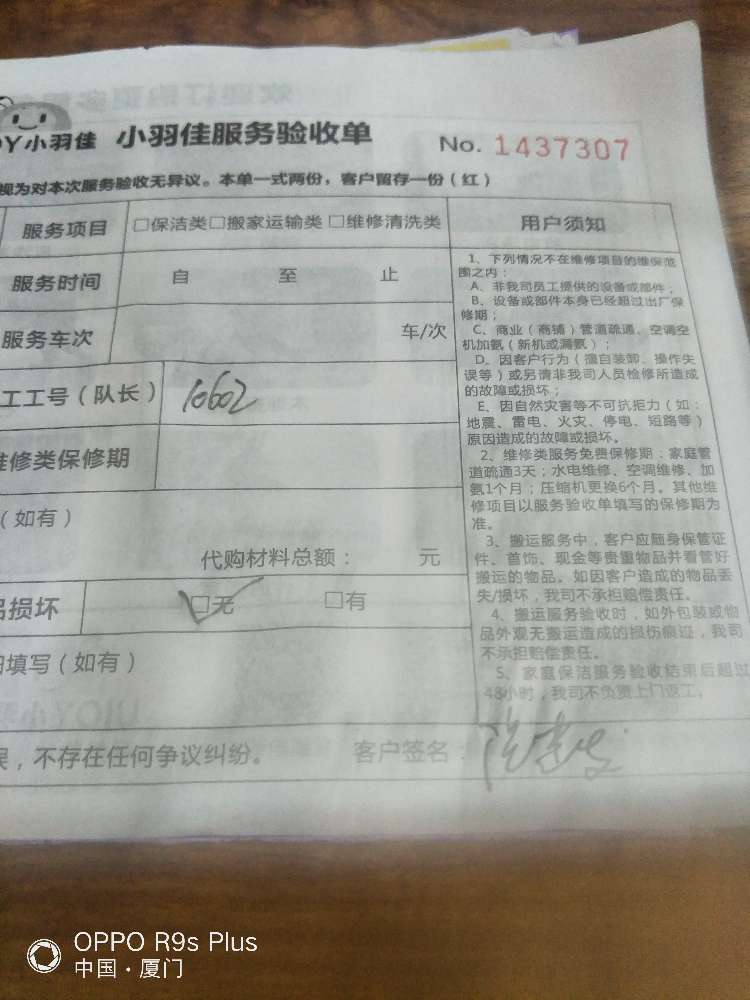 OY小羽佳 小羽佳服务验收单 No. 1437307
视为对本次服务验收无异议。本单一式两份，客户留存一份（红）
服务项目 □保洁类□搬家运输类 □维修清洗类
服务时间 自 至 止
服务车次 车/次
工工号（队长） 10602
维修类保修期
（如有）
代购材料总额： 元
品损坏 □无 □有
填写（如有）
误，不存在任何争议纠纷。 客户签名：
用户须知
1、下列情况不在维修项目的维保范
围之内：
A、非我司员工提供的设备或部件；
B、设备或部件本身已经超过出厂保
修期；
C、商业（商铺）管道疏通、空调空
机加氨（新机或漏氨）；
D、因客户行为（擅自装卸、操作失
误等）或另请非我司人员检修所造成
的故障或损坏；
E、因自然灾害等不可抗拒力（如：
地震、雷电、火灾、停电、短路等）
原因造成的故障或损坏。
2、维修类服务免费保修期：家庭管
道疏通3天；水电维修、空调维修、加
氨1个月；压缩机更换6个月。其他维
修项目以服务验收单填写的保修期为
准。
3、搬运服务中，客户应随身保管证
件、首饰、现金等贵重物品并看管好
搬运的物品。如因客户造成的物品丢
失/损坏，我司不承担赔偿责任。
4、搬运服务验收时，如外包装或物
品外观无搬运造成的损伤痕迹，我司
不承担赔偿责任。
5、家庭保洁服务验收结束后超过
48小时，我司不负责上门返工。
OPPO R9s Plus
中国·厦门